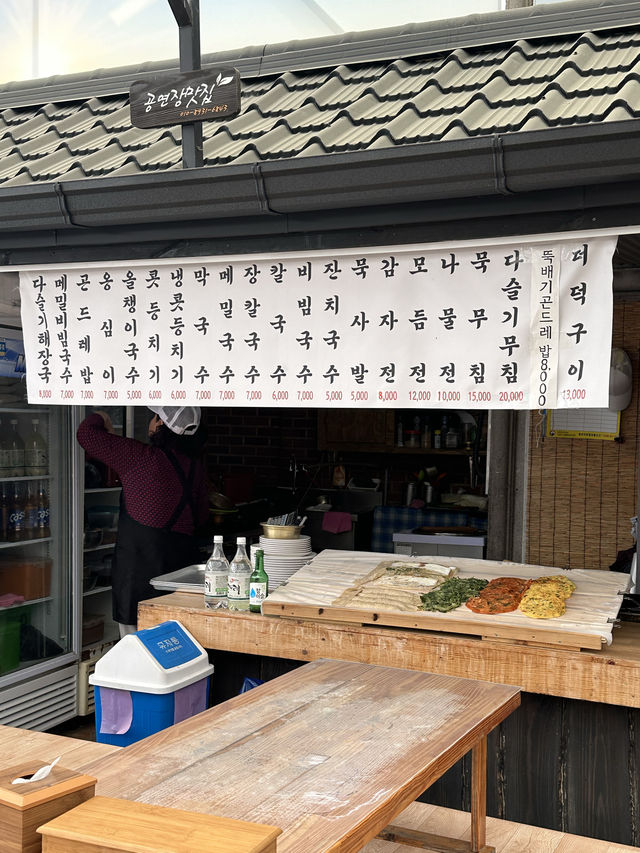 공면장맛집
010-8931-6843
다슬기해장국 8,000
메밀비빔국수 7,000
곤드레밥 7,000
옹심이 7,000
올챙이국수 5,000
콧등치기 6,000
냉콧등치기 6,000
막국수 7,000
메밀국수 7,000
장칼국수 7,000
칼국수 6,000
비빔국수 7,000
잔치국수 5,000
묵사발 5,000
감자전 8,000
모듬전 12,000
나물전 10,000
묵무침 15,000
다슬기무침 20,000
뚝배기곤드레밥 8,000
더덕구이 13,000
휴지통